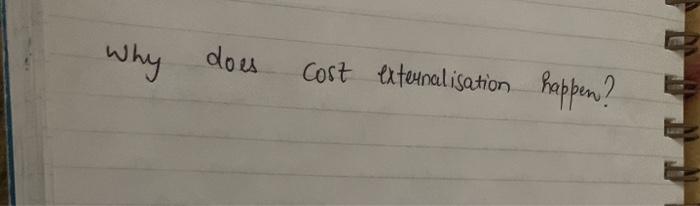 Why does cost externalisation happen?